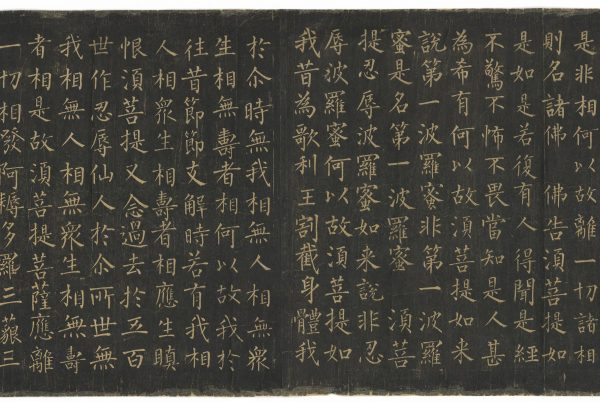 是非相何以故離一切諸相
則名諸佛 佛告須菩提如
是如是若復有人得聞是經
不驚不怖不畏當知是人甚
為希有何以故須菩提如来
說第一波羅蜜非第一波羅
蜜是名第一波羅蜜 須菩
提忍辱波羅蜜如来說非忍
辱波羅蜜何以故須菩提如
我昔為歌利王割截身體我
於尒時無我相無人相無衆
生相無壽者相何以故我於
往昔節節支解時若有我相
人相衆生相壽者相應生瞋
恨須菩提又念過去於五百
世作忍辱仙人於尒所世無
我相無人相無衆生相無壽
者相是故須菩提菩薩應離
一切相發阿耨多羅三藐三